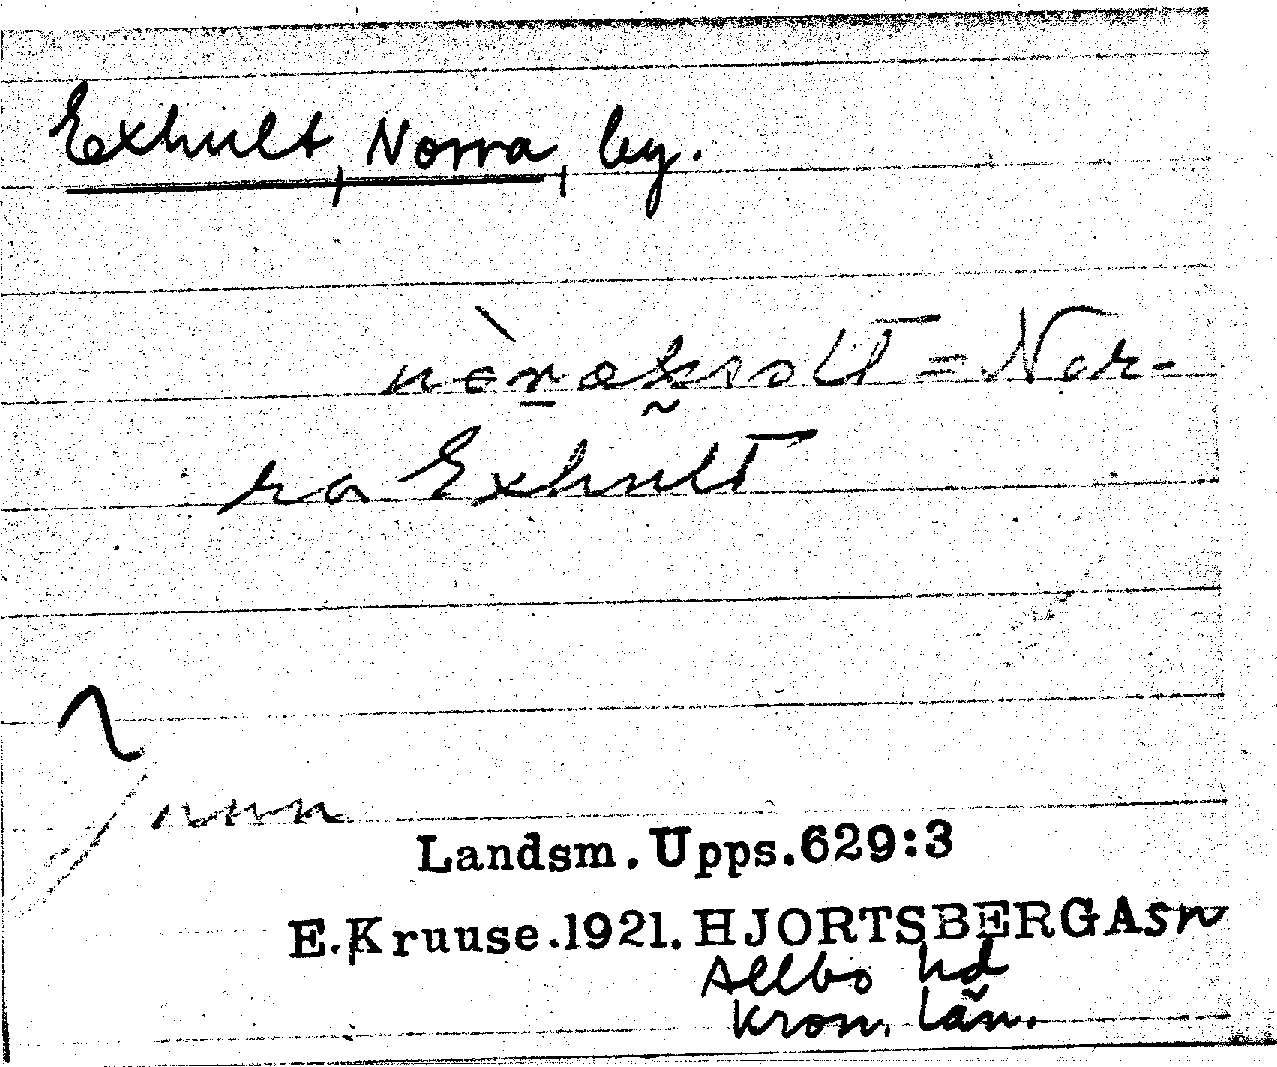 Exhult, Norra, by.
nòraksolt = Nor-
ra Exhult
Landsm. Upps. 629:3
E. Kruuse. 1921. HJORTSBERGA sn
Allbo hd
Kron. län.